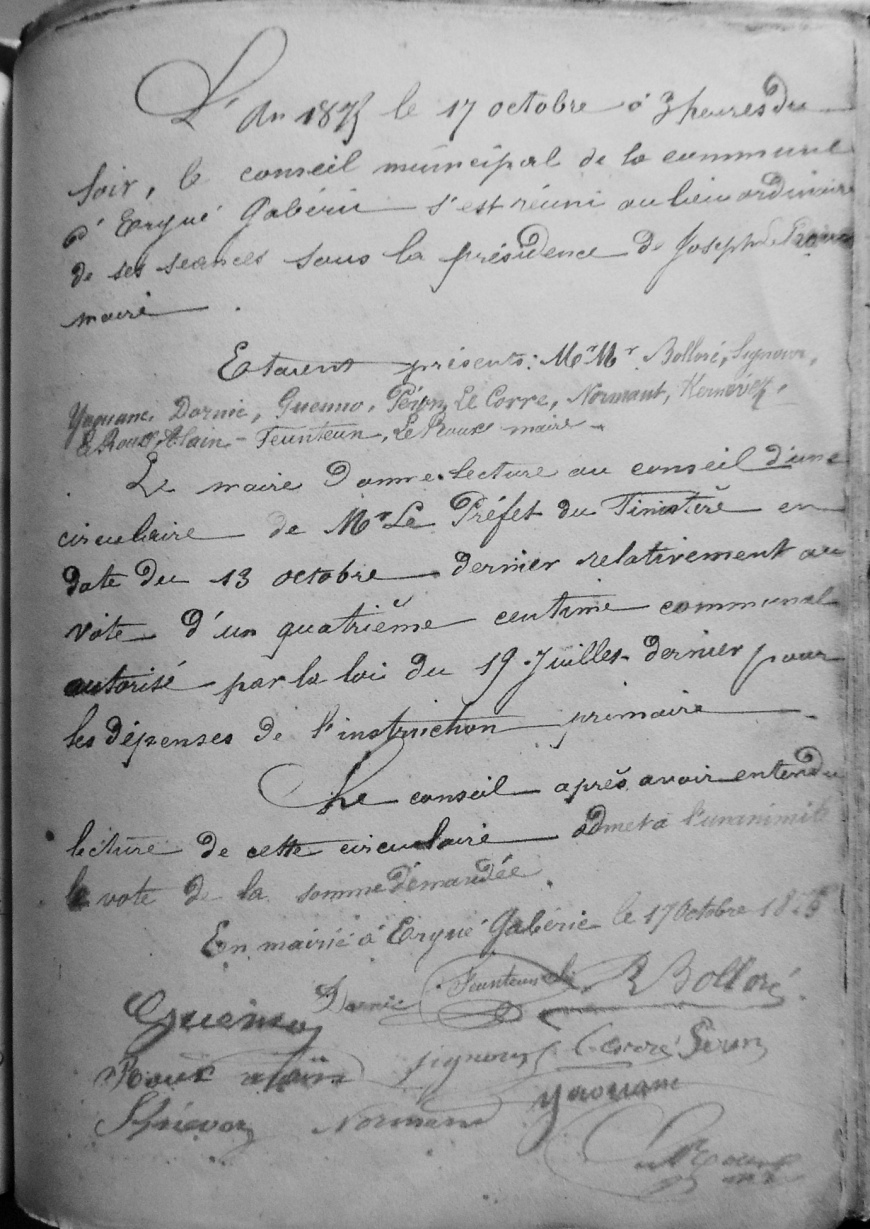 L'An 1875 le 17 octobre à 3 heures du
soir, le conseil municipal de la commune
d'Ergué Gabéric s'est réuni au lieu ordinaire
de ses séances sous la présidence de Joseph Le Roux
maire.
Etaient présents: Mr Mr Bolloré, Signour,
Yaouanc, Dornic, Guenno, Péron, Le Corre, Normant, Kernévez,
Le Roux Alain - Feunteun, Le Roux maire.
Le maire donne lecture au conseil d'une
circulaire de Mr Le Préfet du Finistère en
date du 13 octobre dernier relativement au
vote d'un quatrième centime communal
autorisé par la loi du 19 Juillet dernier pour
les dépenses de l'instruction primaire.
Le conseil après avoir entendu
lecture de cette circulaire admet à l'unanimité
le vote de la somme démandée.
En mairie à Ergué Gabéric le 17 Octobre 1875
Dornic Feunteun R Bolloré
Guenno
Roux alain Signour Corre Péron
Yaouanc
Normant